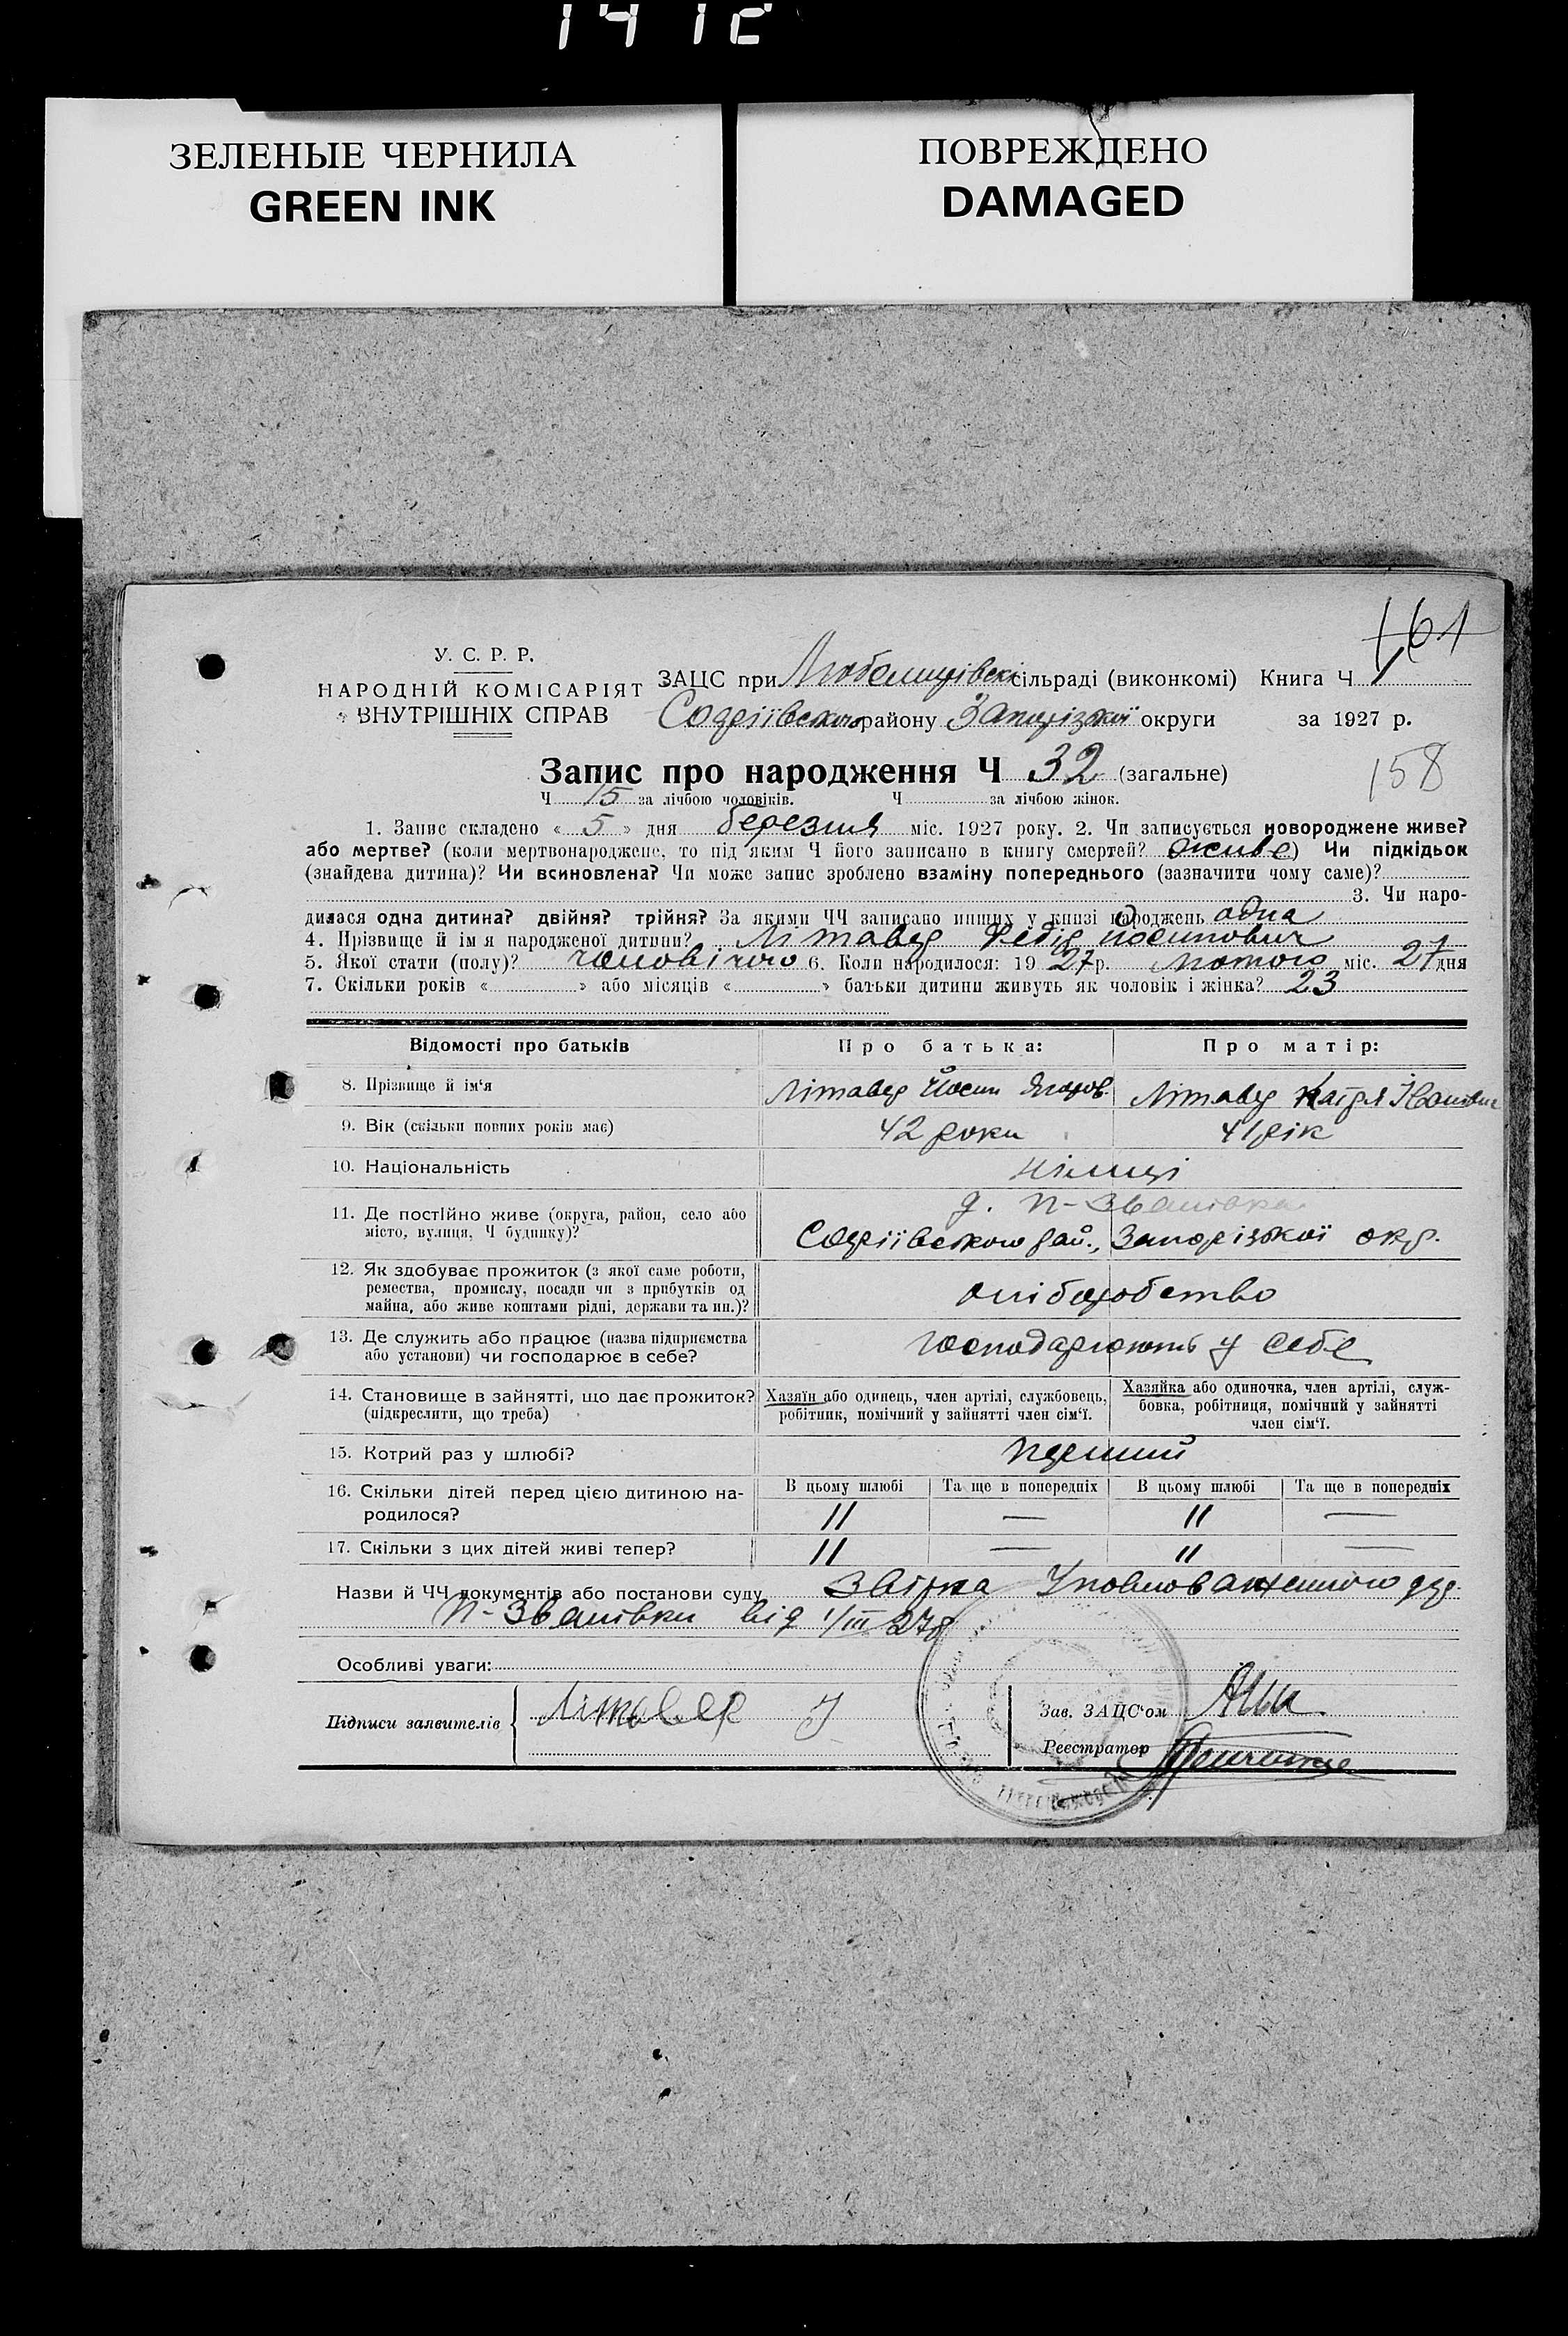 1412
ЗЕЛЕНЫЕ ЧЕРНИЛА
GREEN INK
ПОВРЕЖДЕНО
DAMAGED
161
У. С. Р. Р.
НАРОДНІЙ КОМІСАРІЯТ
ВНУТРІШНІХ СПРАВ
ЗАЦС при сільраді (виконкомі) Книга Ч 1
Софіївського району Запорізької округи за 1927 р.
Запис про народження Ч 32 (загальне)
158
Ч 15 за лічбою чоловіків. Ч за лічбою жінок.
1. Запис складено « 5 » дня березня міс. 1927 року. 2. Чи записується новороджене живе?
або мертве? (коли мертвонароджене, то під яким Ч його записано в книгу смертей? живе) Чи підкідьок
(знайдена дитина)? Чи всиновлена? Чи може запис зроблено взаміну попереднього (зазначити чому саме)?
3. Чи наро-
дилася одна дитина? двійня? трійня? За якими ЧЧ записано инших у книзі народжень одна
4. Прізвище й ім я народженої дитини? Літавер Федір Йосипович
5. Якої стати (полу)? чоловічого 6. Коли народилося: 19 27 р. лютого міс. 27 дня
7. Скільки років « » або місяців « » батьки дитини живуть як чоловік і жінка? 23
Відомості про батьків Про батька: Про матір:
8. Прізвище й ім‘я Літавер Йосип Літавер Катря Іванівна
9. Вік (скільки повних років має) 42 роки 41 рік
10. Національність німці
11. Де постійно живе (округа, район, село або
місто, вулиця, Ч будинку)?
д. П-Званівка
Софіївського рай., Запорізької окр.
12. Як здобуває прожиток (з якої саме роботи,
ремества, промислу, посади чи з прибутків од
майна, або живе коштами рідні, держави та ин.)?
хліборобство
13. Де служить або працює (назва підприємства
або установи) чи господарює в себе?
господарюють у себе
14. Становище в зайнятті, що дає прожиток?
(підкреслити, що треба)
Хазяїн або одинець, член артілі, службовець,
робітник, помічний у зайнятті член сім‘ї.
Хазяйка або одиночка, член артілі, служ-
бовка, робітниця, помічний у зайнятті
член сім‘ї.
15. Котрий раз у шлюбі? перший
16. Скільки дітей перед цією дитиною на-
родилося?
В цьому шлюбі Та ще в попередніх В цьому шлюбі Та ще в попередніх
11 — 11 —
17. Скільки з цих дітей живі тепер? 11 — 11 —
Назви й ЧЧ документів або постанови суду Звірка Уповноваженного дер.
П-Званівки від 1/III 27р
Особливі уваги:
Підписи заявителів Літавер Й
Зав. ЗАЦС‘ом
Реєстратор